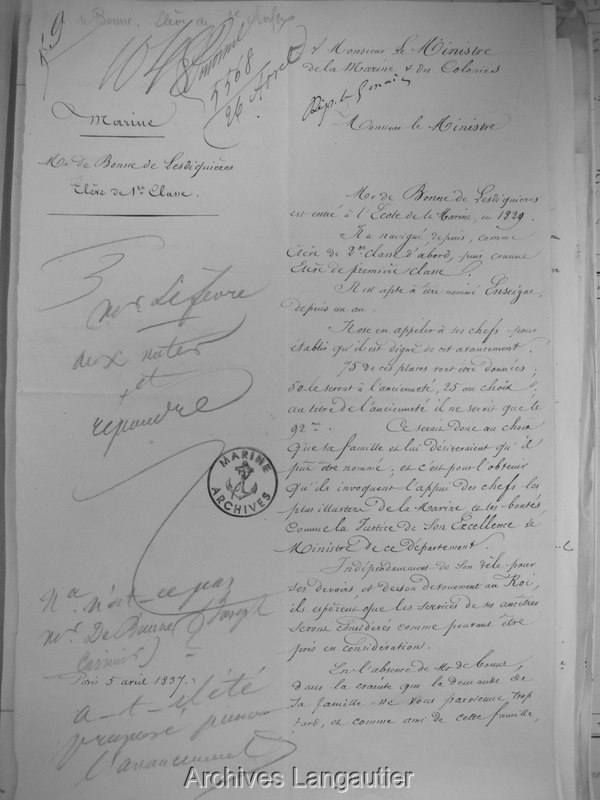 de Bonne. Elève de
N. 9
5568
26 Avril
Marine
Mr. de Bonne de Lesdiguières
Elève de 1re Classe.
mr Lefèvre
deux notes
et
répondre
MARINE
ARCHIVES
na n'est-ce pas
mr. De Bonne (Joseph
Casimir) ?
Paris 5 avril 1837.
a-t-il été
proposé pour
l'avancement
à Monsieur le Ministre
de la Marine & des Colonies
Monsieur le Ministre
Mr. de Bonne de Lesdiguières
est entré à l'Ecole de la Marine, en 1829.
Il a navigué, depuis, comme
Elève de 2me Classe d'abord, puis comme
Elève de première classe.
Il est apte à être nommé Enseigne,
depuis un an.
Il ose en appeler à ses chefs pour
établir qu'il est digne de cet avancement.
75 de ces places vont être données ;
50 le seront à l'ancienneté, 25 au choix ;
au titre de l'ancienneté il ne serait que le
92me. Ce serait donc au choix
que sa famille et lui désireraient qu'il
pût être nommé, et c'est pour l'obtenir
qu'ils invoquent l'appui des chefs les
plus illustres de la Marine, et les bontés,
comme la Justice de Son Excellence le
Ministre de ce département.
Indépendamment de son zèle pour
ses devoirs, et de son dévouement au Roi,
ils espèrent que les services de ses ancêtres
seront considérés comme pouvant être
pris en considération.
En l'absence de Mr de Bonne,
dans la crainte que la demande de
sa famille ne vous parvienne trop
tard, et comme ami de cette famille,
Archives Langautier